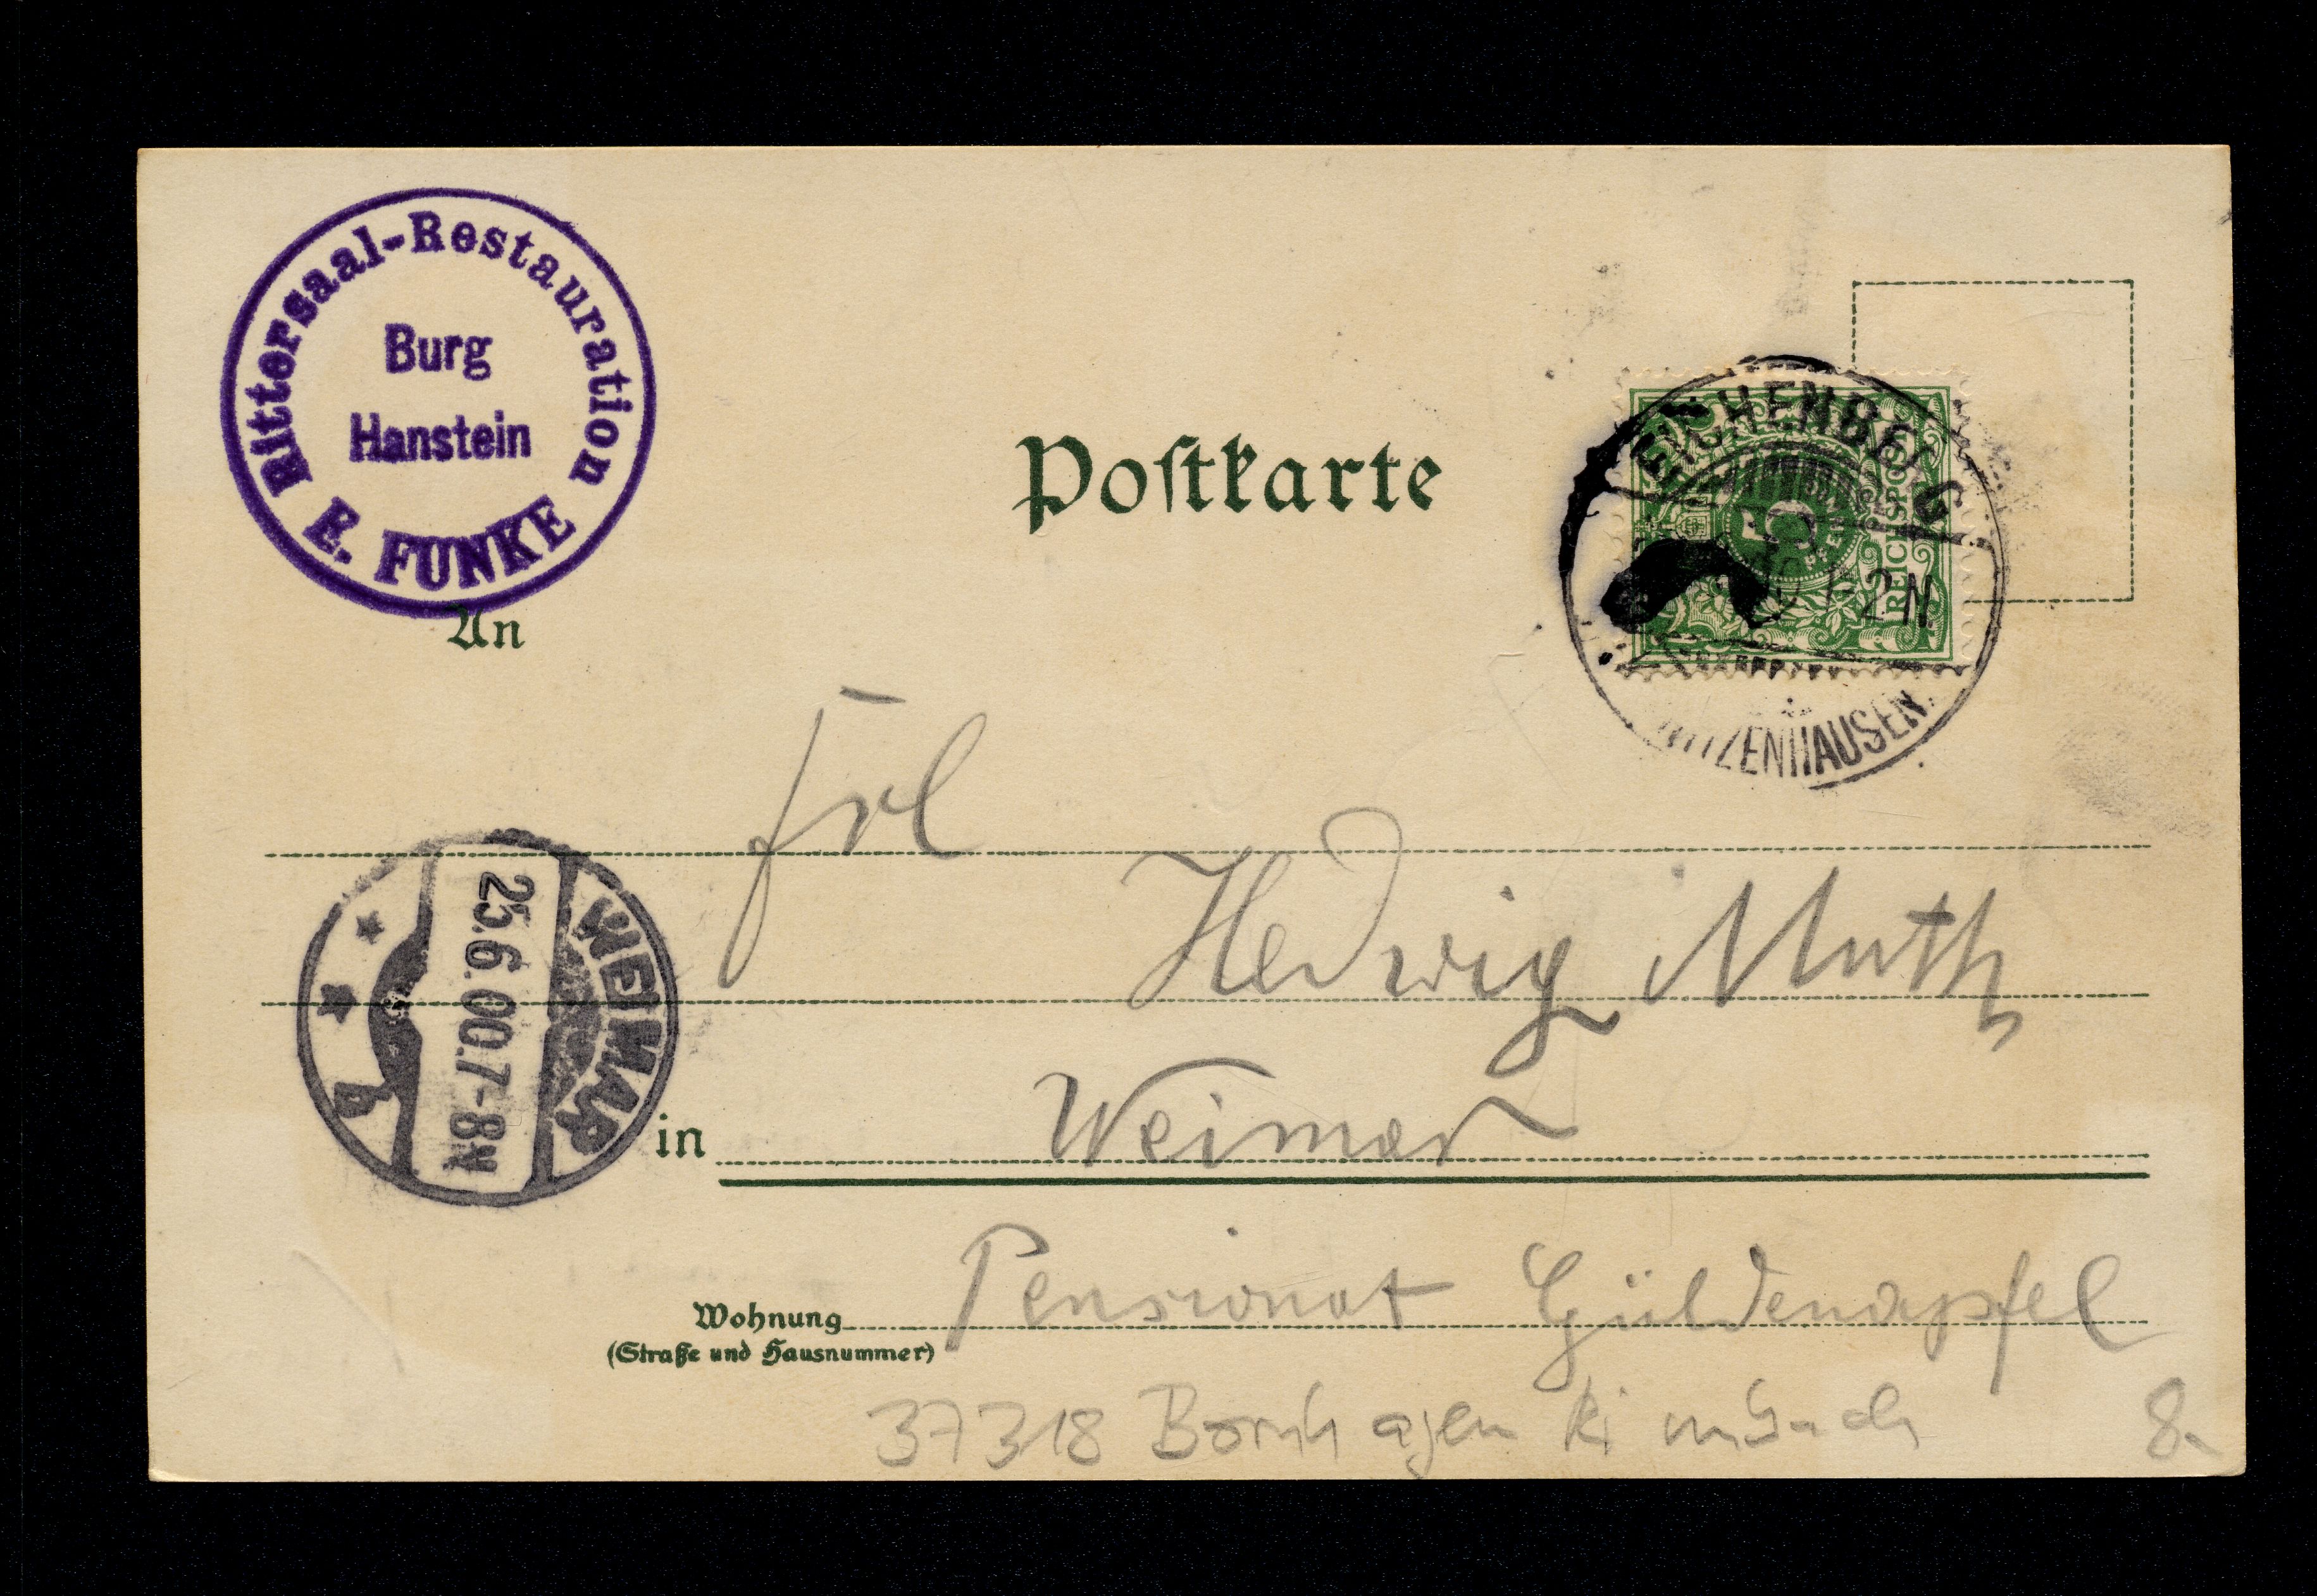 Rittersaal-Restauration
Burg
Hanstein
E. FUNKE
Postkarte
EICHENBERG
5
PFENNIG
REICHSPOST
1-2N
WITZENHAUSEN.
An
Frl
Hedwig Muth
WEIMAR
25.6.00.7-8N
in Weimar
Wohnung Pensionat Güldenapfel
(Straße und Hausnummer)
37318 Bornhagen
8.-